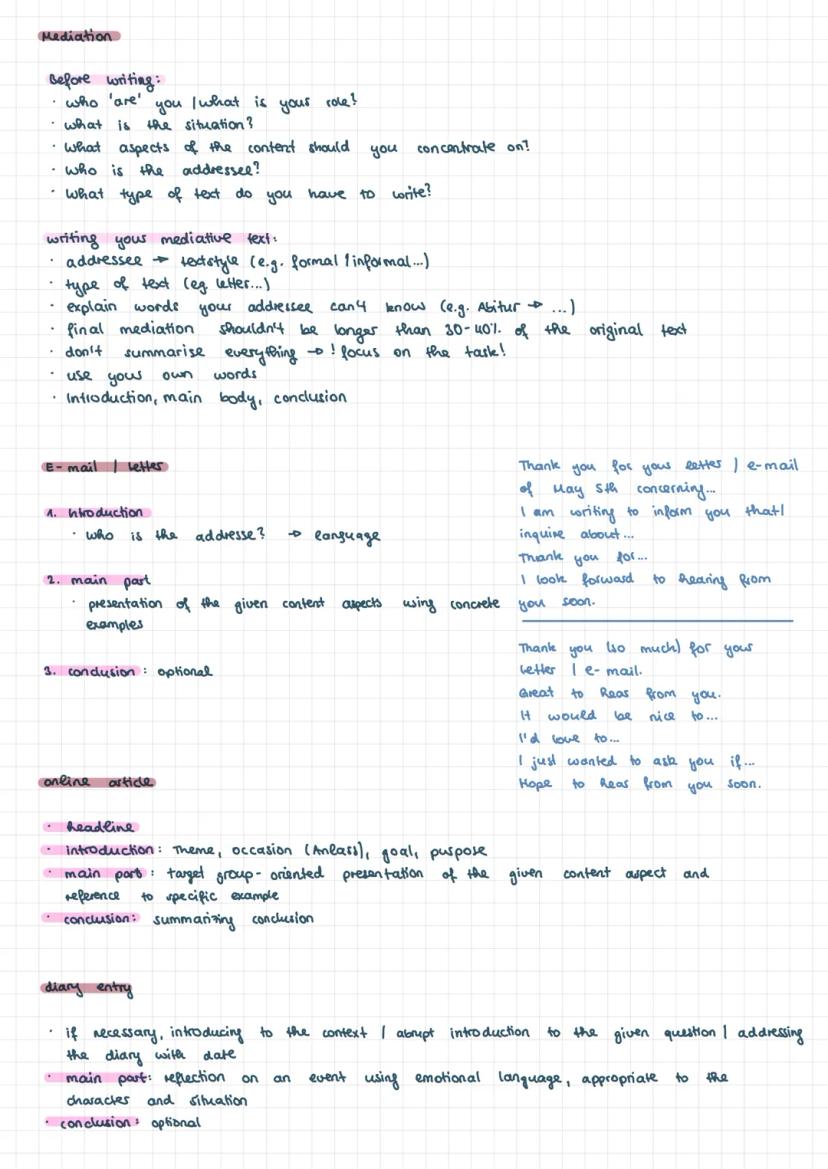 Mediation
Before writing:
· who 'are' you / what is your role?
· what is the situation?
· What aspects of the content should you concentrate on?
· Who is the addressee?
· What type of text do you have to write?
writing your mediative text:
· addressee → textstyle (e.g. formal / informal...)
· type of text (eg. letter...)
· explain words your addressee can't know (e.g. Abitur → ...)
· final mediation shouldn't be longer than 30-40% of the original text
· don't summarise everything → ! focus on the task!
· use your own words
· Introduction, main body, conclusion
E-mail / letter
1. Introduction
· who is the addresse? → language
2. main part
· presentation of the given content aspects using concrete
examples
3. conclusion: optional
Thank you for your letter / e-mail
of May 5th concerning...
I am writing to inform you that/
inquire about...
Thank you for...
I look forward to hearing from
you soon.
Thank you (so much) for your
letter / e-mail.
Great to hear from you.
It would be nice to...
I'd love to...
I just wanted to ask you if...
Hope to hear from you soon.
online article
· headline
· introduction: Theme, occasion (Anlass), goal, purpose
· main part: target group-oriented presentation of the given content aspect and
reference to specific example
· conclusion: summarizing conclusion
diary entry
· if necessary, introducing to the context / abrupt introduction to the given question / addressing
the diary with date
· main part: reflection on an event using emotional language, appropriate to the
character and situation
· conclusion: optional